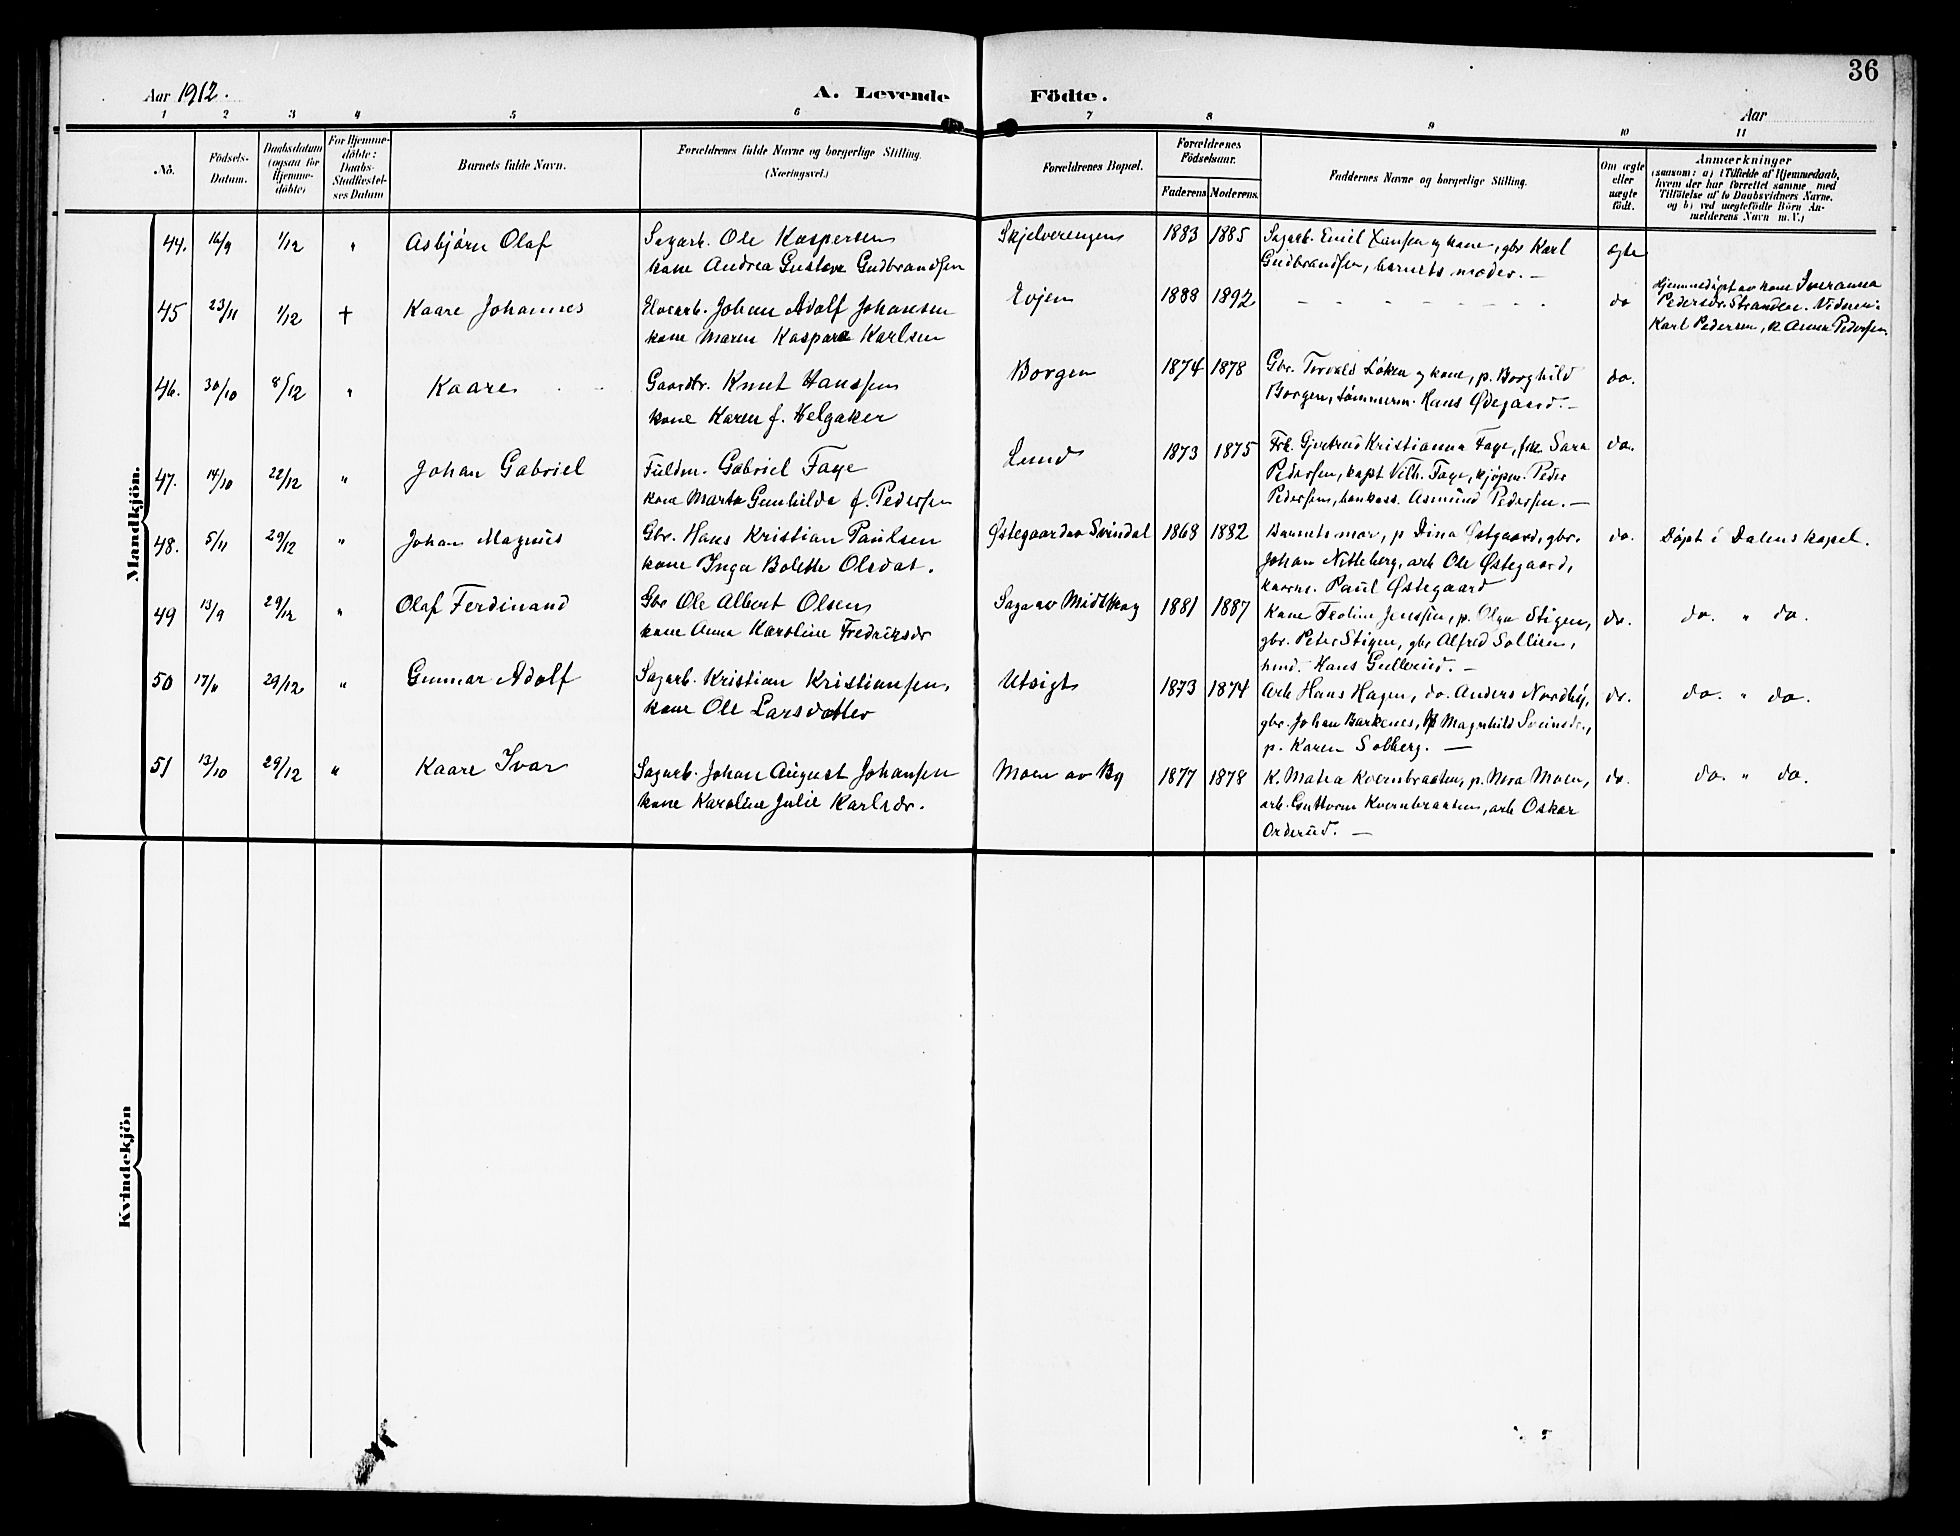 36
Aar 1912.
A. Levende
Födte.
Aar
1 2 3 4 5 6 7 8 9 10 11
No.
Födsels-
Datum.
Daabsdatum
(ogsaa for
Hjemme-
döbte)
For Hjemme-
döbte:
Daabs-
Stadfæstel-
ses Datum
Barnets fulde Navn.
Forældrenes fulde Navne og borgerlige Stilling.
(Næringsvei.)
Forældrenes Bopæl.
Forældrenes
Födselsaar.
Faderens Moderens.
Faddernes Navne og borgerlige Stilling.
Om ægte
eller
uægte
födt.
Anmærkninger
(saasom: a) i Tilfælde af Hjemmedaab,
hvem der har forrettet samme med
Tilföielse af to Daabsvidners Navne.
og b) ved uægtefödte Börn An-
melderens Navn m. V.)
Mandkjön.
44. 16/9 1/12 " Asbjörn Olaf
Sagarb. Ole Kaspersen
kone Andrea Gustava Gudbrandsen
Skjelverengen 1883 1885
Sagarb. Emil Hansen og kone, gbr Karl
Gudbrandsen, barnets moder. —
egte
45 23/11 1/12 + Kaare Johannes
Johan Adolf Johansen
kone Maren Kaspara Karlsen
Evjen 1888 1892
- - - - - - - - -
do
Hjemmedöpt av kone Iveranna
Pedersdr. Stranden. Vidner:
Karl Pedersen, k Anna Pedersen
46. 30/10 8/12 " Kaare
Gaardbr. Knut Hanssen
kone Karen f. Helgaker
Borgen 1874 1878
Gbr. Torvald Løken og kone, p. Borghild
Borgen, tømmerm. Hans Ødegaard. —
do.
47. 14/10 22/12 " Johan Gabriel
Fuldm. Gabriel Faye
kone Marta Gunhilda f. Pedersen
Lund 1873 1875
Frk. Gjertrud Kristianna Faye, frk Sara
Pedersen, kapt Vilh. Faye, kjøpm. Peder
Pedersen, bankass. Asmund Pedersen. —
do.
48. 5/11 29/12 " Johan Magnus
Gbr. Hans Kristian Paulsen
kone Inga Bolette Olsdat.
Østegaarden Svindal 1868 1882
Barnets mor, p Dina Østgaard, gbr.
Johan Nitteberg, arb Ole Østegaard,
Paul Østegaard
do.
Döpt i Dalens kapel.
49 13/9 29/12 " Olaf Ferdinand
Gbr Ole Albert Olsen
kone Anna Karoline Fredriksdr
Saga av Midtskog 1881 1887
Kone Teoline Jenssen, p. Olga Stigen,
gbr. Peter Stigen, gbr Alfred Sollien,
Hans Gullerud. —
do.
do. " do.
50 17/11 29/12 " Gunnar Adolf
Sagarb. Kristian Kristiansen,
kone Ole Larsdatter
Utsigt 1873 1874
Arb Hans Hagen, do. Anders Nordby,
gbr. Johan Barkenes, p Magnhild Sveinsdr.,
p. Karen Solberg. —
do.
do. " do.
51 13/10 29/12 " Kaare Ivar
Sagarb. Johan August Johansen
kone Karoline Julie Karlsdr.
Moen av By 1877 1878
K. Matea Kvernbraaten, p. Nora Moen,
arb. Guttorm Kvernbraaten, arb Oskar
Orderud. —
do.
do. " do.
Kvindekjön